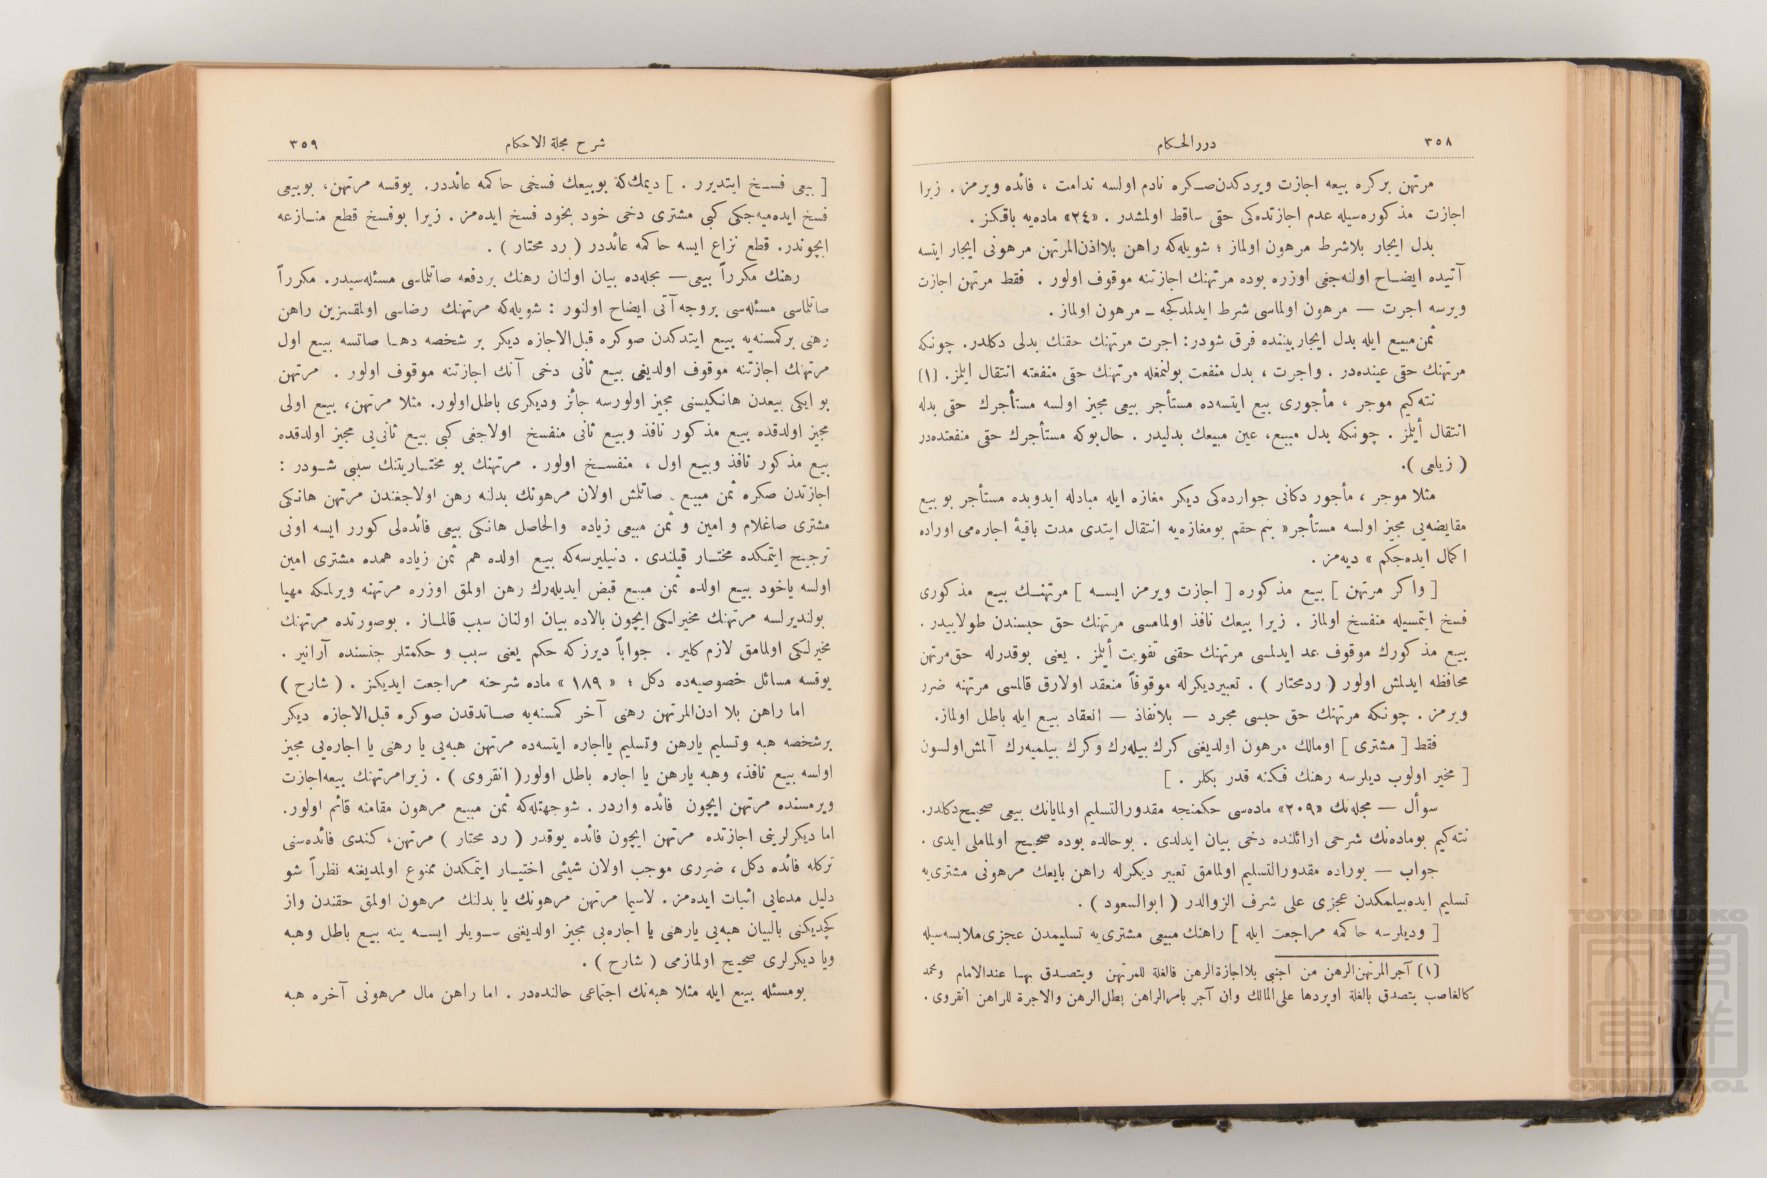 ٣٥٨
دررالحكام
مرتهن بركره بيعه اجازت ويردكدنصكره نادم اولسه ندامت ، فائده ويرمز . زيرا
اجازت مذكورهسيله عدم اجازتدهكى حقى ساقط اولمشدر . «٢٤» مادهيه باقيكز .
بدل ايجار بلاشرط مرهون اولماز ؛ شويلهكه راهن بلااذنالمرتهن مرهونى ايجار ايتسه
آتيده ايضاح اولنهجغى اوزره بوده مرتهنك اجازتنه موقوف اولور . فقط مرتهن اجازت
ويرسه اجرت — مرهون اولماسى شرط ايدلمدكجه — مرهون اولماز .
ثمن مبيع ايله بدل ايجاربيننده فرق شودر: اجرت مرتهنك حقنك بدلى دكلدر. چونكه
مرتهنك حقى عيندهدر . واجرت ، بدل منفعت بولنمغله مرتهنك حقى منفعته انتقال ايلمز. (١)
نتهكيم موجر ، مأجورى بيع ايتسهده مستأجر بيعى مجيز اولسه مستأجرك حقى بدله
انتقال أيلمز . چونكه بدل مبيع، عين مبيعك بدليدر . حالبوكه مستأجرك حقى منفعتدهدر
( زيلعى ).
مثلا موجر ، مأجور دكانى جواردهكى ديكر مغازه ايله مبادله ايدوبده مستأجر بو بيع
مقايضهيى مجيز اولسه مستأجر« بنم حقم بومغازهيه انتقال ايتدى مدت باقيۀ اجارهمى اوراده
اكمال ايدهجكم » ديهمز .
[ واكر مرتهن ] بيع مذكوره [ اجازت ويرمز ايسه ] مرتهنك بيع مذكورى
فسخ ايتمسيله منفسخ اولماز . زيرا بيعك نافذ اولمامسى مرتهنك حق حبسندن طولاييدر .
بيع مذكورك موقوف عد ايدلمسى مرتهنك حقنى تفويت أيلمز . يعنى بوقدرله حق مرتهن
محافظه ايدلمش اولور ( ردمحتار ) . تعبيرديكرله موقوفاً منعقد اولارق قالمسى مرتهنه ضرر
ويرمز . چونكه مرتهنك حق حبسى مجرد — بلانفاذ — انعقاد بيع ايله باطل اولماز.
فقط [ مشترى ] اومالك مرهون اولديغنى كرك بيلهرك وكرك بيلميهرك آلمش اولسون
[ مخير اولوب ديلرسه رهنك فكنه قدر بكلر . ]
سوأل — مجلهنك «٢٠٩» مادهسى حكمنجه مقدورالتسليم اولمايانك بيعى صحيح دكلدر.
نتهكيم بومادهنك شرحى اوائلنده دخى بيان ايدلدى . بوحالده بوده صحيح اولماملى ايدى .
جواب — بوراده مقدورالتسليم اولمامق تعبير ديكرله راهن بايعك مرهونى مشترىيه
تسليم ايدهبيلمكدن عجزى على شرف الزوالدر ( ابوالسعود ) .
[ وديلرسه حاكمه مراجعت ايله ] راهنك مبيعى مشترىيه تسليمدن عجزى ملابسهسيله
(١) آجرالمرتهن الرهن من اجنبى بلااجازةالرهن فالغلة للمرتهن ويتصدق بها عندالامام ومحمد
كالغاصب يتصدق بالغلة اويردها على المالك وان آجر بامرالراهن بطل الرهن والاجرة للراهن انقروى .
شرح مجلة الاحكام
٣٥٩
[ بيعى فسخ ايتديرر . ] ديمككه بوبيعك فسخى حاكمه عائددر. يوقسه مرتهن، بوبيعى
فسخ ايدهميهجكى كبى مشترى دخى خود بخود فسخ ايدهمز . زيرا بوفسخ قطع منازعه
ايچوندر. قطع نزاع ايسه حاكمه عائددر ( رد محتار ) .
رهنك مكرراً بيعى— مجلهده بيان اولنان رهنك بردفعه صاتلماسى مسئلهسيدر. مكرراً
صاتلماسى مسئلهسى بروجه آتى ايضاح اولنور : شويلهكه مرتهنك رضاسى اولمقسزين راهن
رهنى بركمسنهيه بيع ايتدكدن صوكره قبل الاجازه ديكر بر شخصه دها صاتسه بيع اول
مرتهنك اجازتنه موقوف اولديغى بيع ثانى دخى آنك اجازتنه موقوف اولور . مرتهن
بو ايكى بيعدن هانكيسنى مجيز اولورسه جائز وديكرى باطل اولور. مثلا مرتهن، بيع اولى
مجيز اولدقده بيع مذكور نافذ وبيع ثانى منفسخ اولاجغى كبى بيع ثانىيى مجيز اولدقده
بيع مذكور نافذ وبيع اول ، منفسخ اولور . مرتهنك بو مختاريتنك سببى شودر :
اجازتدن صكره ثمن مبيع . صاتلمش اولان مرهونك بدلنه رهن اولاجغندن مرتهن هانكى
مشترى صاغلام و امين و ثمن مبيعى زياده والحاصل هانكى بيعى فائدهلى كورر ايسه اونى
ترجيح ايتمكده مختار قيلندى . دنيليرسهكه بيع اولده هم ثمن زياده همده مشترى امين
اولسه ياخود بيع اولده ثمن مبيع قبض ايديلهرك رهن اولمق اوزره مرتهنه ويرلمكه مهيا
بولنديرلسه مرتهنك مخيرلكى ايچون بالاده بيان اولنان سبب قالماز . بوصورتده مرتهنك
مخيرلكى اولمامق لازم كلير . جواباً ديرزكه حكم يعنى سبب و حكمتلر جنسنده آرانير .
يوقسه مسائل خصوصيهده دكل ؛ « ١٨٩ » ماده شرحنه مراجعت ايديكز . ( شارح )
اما راهن بلا اذن المرتهن رهنى آخر كمسنهيه صاتدقدن صوكره قبل الاجازه ديكر
برشخصه هبه وتسليم يارهن وتسليم يااجاره ايتسهده مرتهن هبهيى يا رهنى يا اجارهيى مجيز
اولسه بيع نافذ، وهبه يارهن يا اجاره باطل اولور( انقروى ) . زيرامرتهنك بيعه اجازت
ويرمسنده مرتهن ايچون فائده واردر . شوجهتلهكه ثمن مبيع مرهون مقامنه قائم اولور.
اما ديكرلرينى اجازتده مرتهن ايچون فائده يوقدر ( رد محتار ) مرتهن، كندى فائدهسنى
تركله فائده دكل ، ضررى موجب اولان شيئى اختيار ايتمكدن ممنوع اولمديغنه نظراً شو
دليل مدعايى اثبات ايدهمز . لاسيما مرتهن مرهونك يا بدلنك مرهون اولمق حقندن واز
كچديكنى بالبيان هبهيى يارهنى يا اجارهيى مجيز اولديغنى سويلر ايسه ينه بيع باطل وهبه
ويا ديكرلرى صحيح اولمازمى ( شارح ) .
بومسئله بيع ايله مثلا هبهنك اجتماعى حالندهدر . اما راهن مال مرهونى آخره هبه
TOYO BUNKO
東洋文庫
TOYO BUNKO